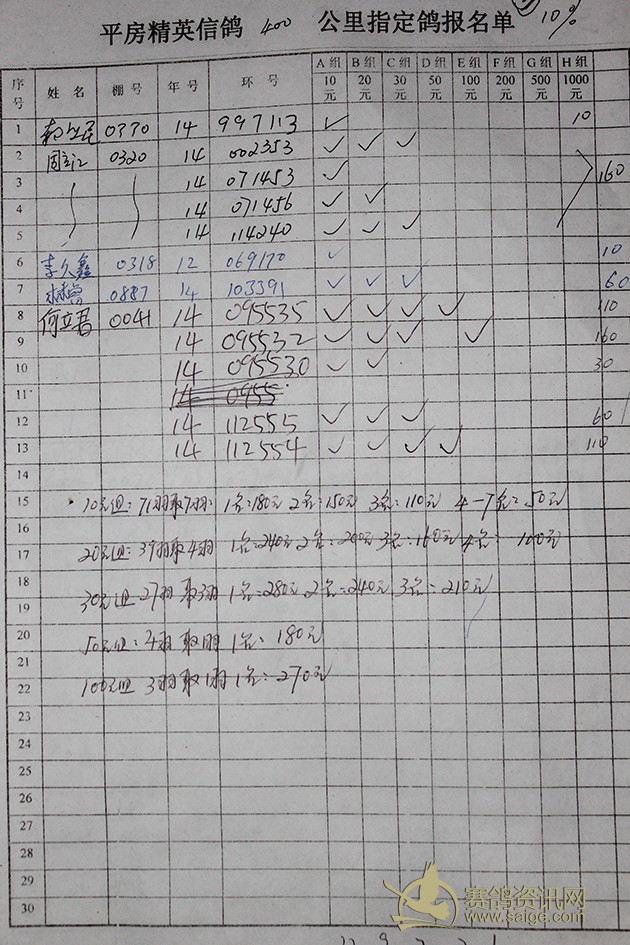 平房精英信鸽 400 公里指定鸽报名单 10%
序号 姓名 棚号 年号 环号 A组 10元 B组 20元 C组 30元 D组 50元 E组 100元 F组 200元 G组 500元 H组 1000元
1 0370 14 997113 ✓ 10
2 周立江 0320 14 002353 ✓ ✓ ✓
3 14 071453 ✓ 160
4 14 071456 ✓ ✓
5 14 114240 ✓ ✓ ✓
6 李久鑫 0318 12 069170 ✓ 10
7 0887 14 103391 ✓ ✓ ✓ 60
8 何立君 0041 14 095535 ✓ ✓ ✓ ✓ 110
9 14 095532 ✓ ✓ ✓ ✓ 160
10 14 095530 ✓ ✓ 30
11 14 0955
12 14 112555 ✓ ✓ ✓ 60
13 14 112554 ✓ ✓ ✓ ✓ 110
14
15 10元组:71羽取7羽: 1名:180元 2名:150元 3名:110元 4-7名:50元
16
17 20元组:39羽取4羽 1名:240元 2名:200元 3名:160元 4名: 100元
18
19 30元组 27羽取3羽 1名:280元 2名:240元 3名:210元
20
21 50元组:4羽取1羽 1名:180元
22 100元组 3羽取1羽 1名:270元
23
24
25
26
27
28
29
30
赛鸽资讯网
www.saige.com